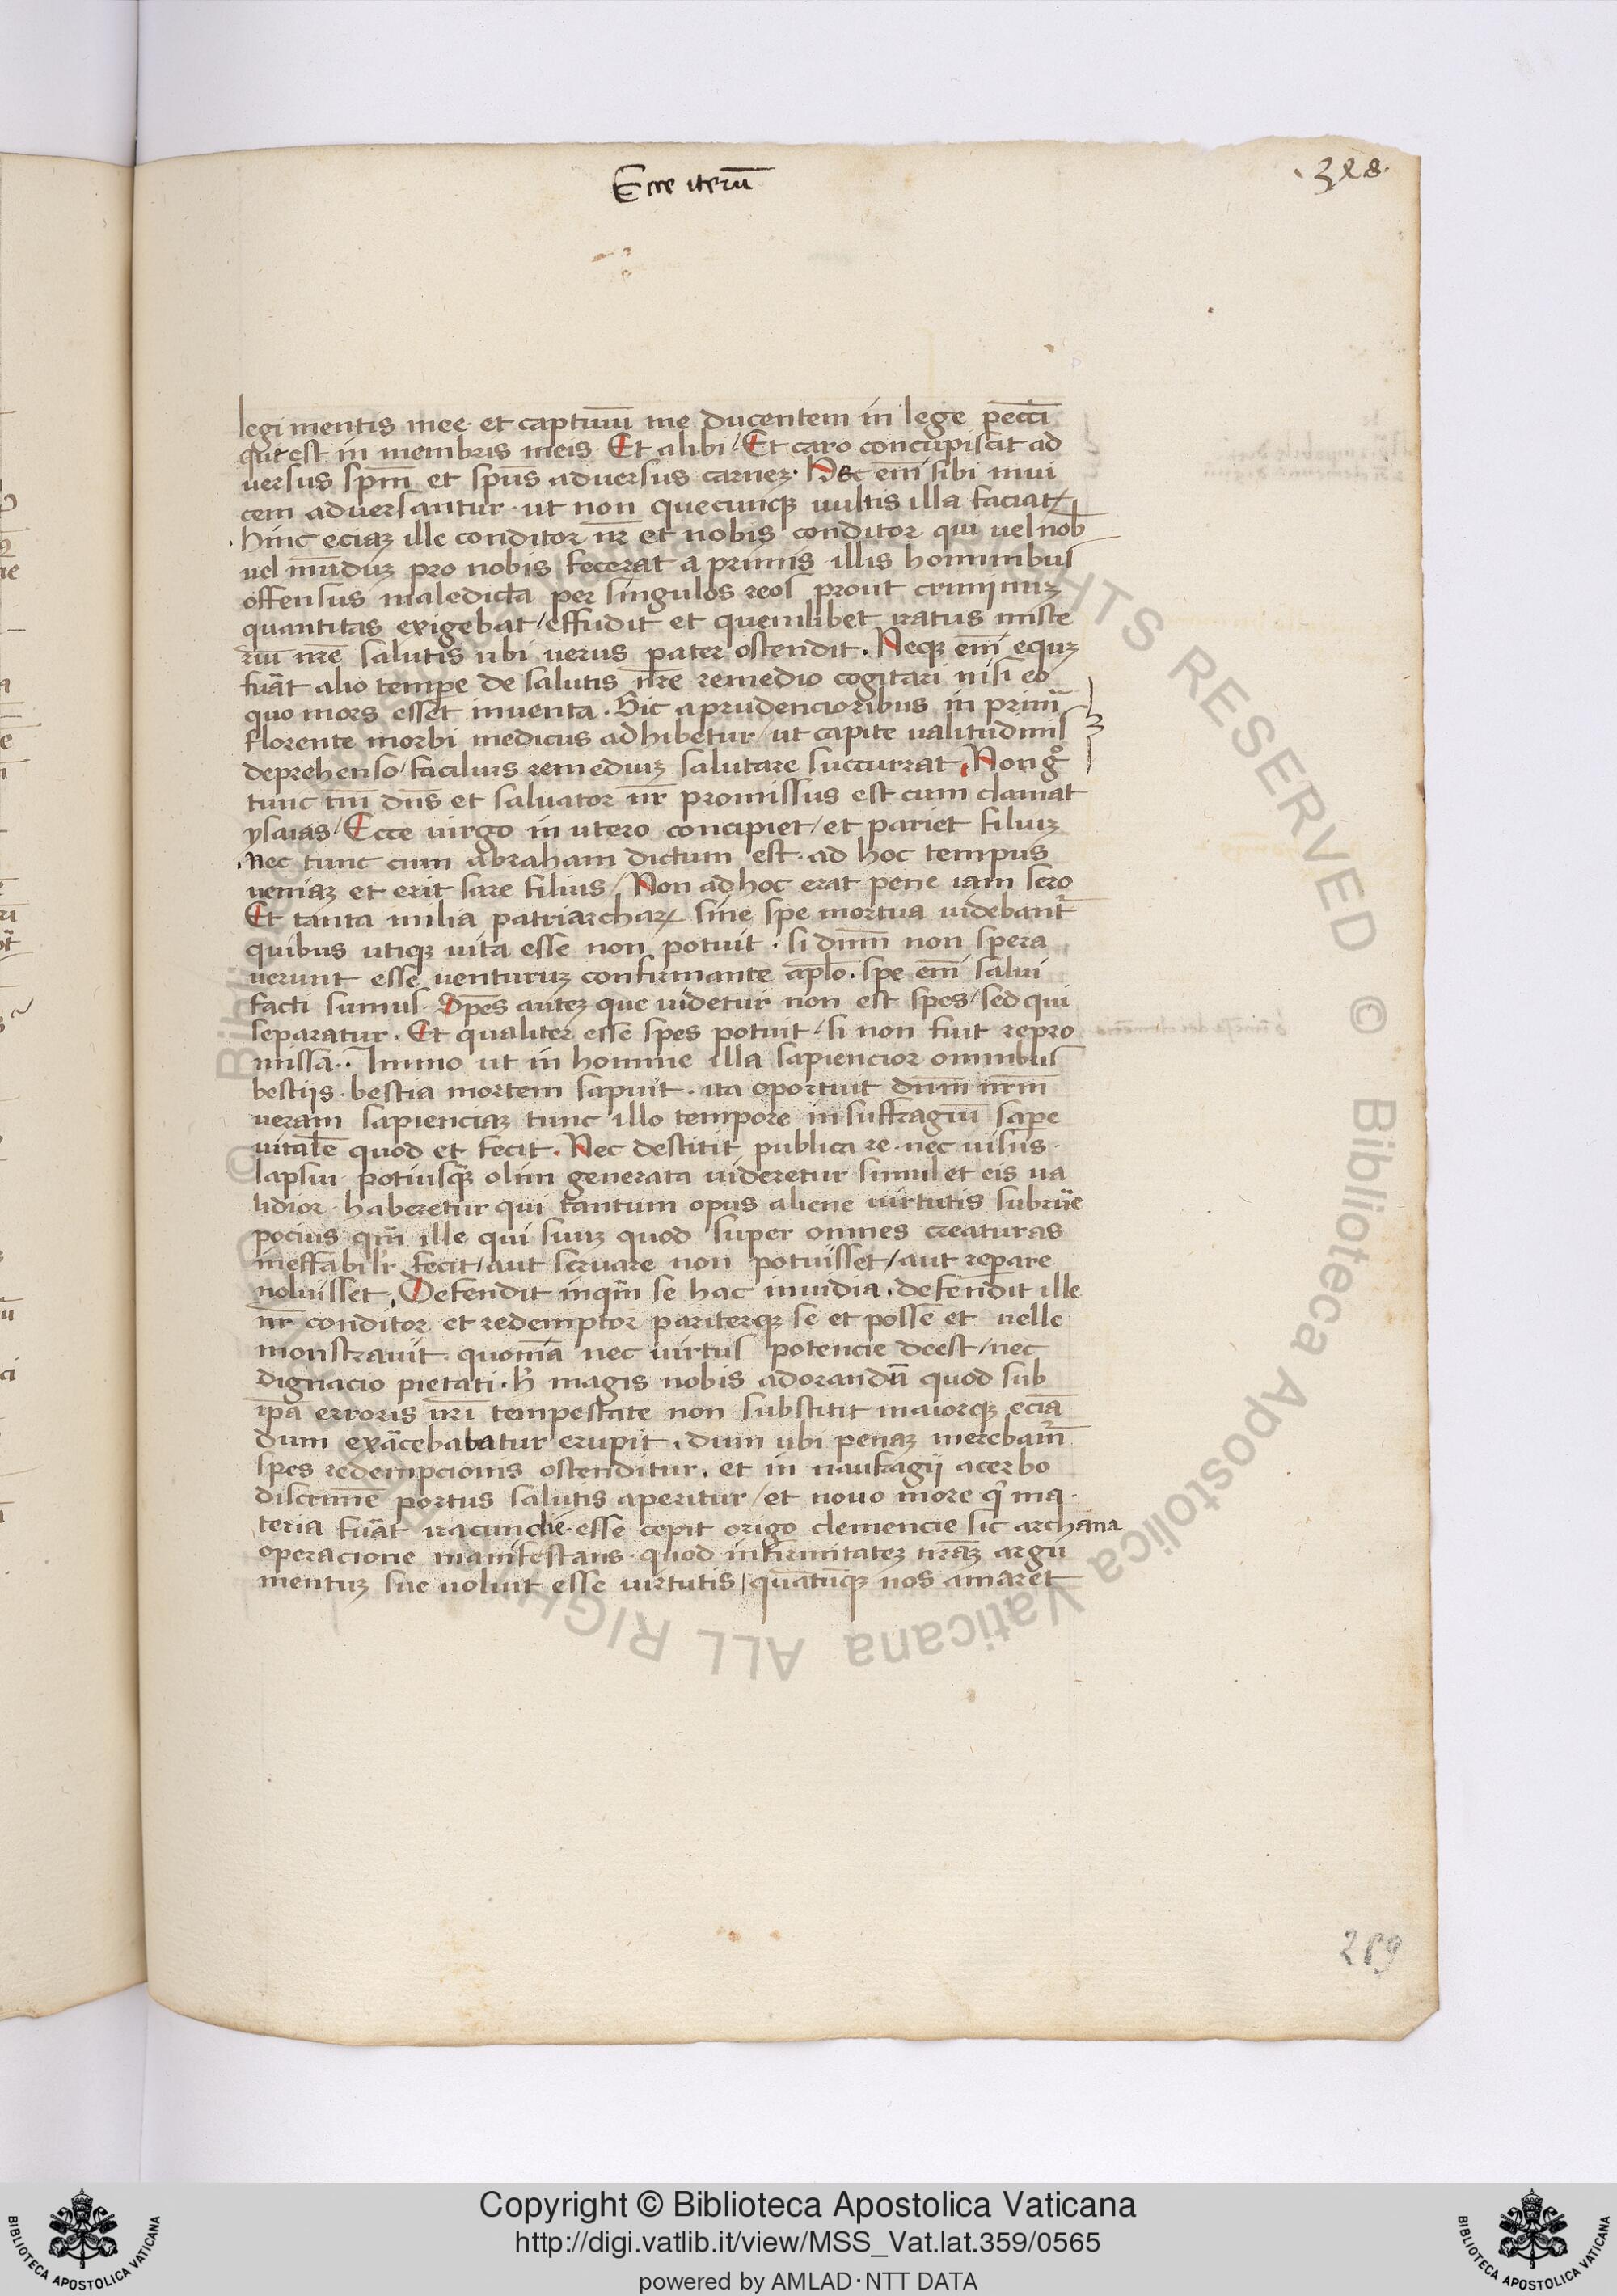 Ecce iterū
.328.
legi mentis mee. et captiuū me ducentem in lege pecci
que est in membris meis. Et alibi / Et caro concupiscit ad
uersus spm̄ et spūs aduersus carneꝫ. Hec em̄ sibi inui
cem aduersantur. ut non quecunqꝫ uultis illa faciat
.hinc eciaꝫ ille conditor nr̄ et nobis conditor qui uel nob
uel munduꝫ pro nobis fecerat a primis illis hominibus
offensus maledicta per singulos reos prout criminuꝫ
quantitas exigebat / effudit et quemlibet iratus miste
riū nr̄e salutis ubi uerus pater ostendit. Neqꝫ em̄ equꝫ
fuāt alio tempe de salutis nr̄e remedio cogitari nisi eo
quo mors esset inuenta. Sic a prudencioribus in prim̄
florente morbi medicus adhibetur / ut capite ualitudinis
deprehenso / facilius remediuꝫ salutare succurrat. Non gͦ
tunc tm̄ dn̄s et saluator nr̄ promissus est cum clamat
ysaias / Ecce uirgo in utero concipiet / et pariet filiuꝫ
.Nec tunc cum abraham dictum est. ad hoc tempus
ueniaꝫ et erit sare filius / Non ad hoc erat pene iam sero
Et tanta milia patriarchaꝝ sine spe mortua uidebant
quibus utiqꝫ uita esse non potuit. si dnm̄ non spera
uerunt esse uenturuꝫ confirmante aplo. spe em̄ salui
facti sumus. Spes auteꝫ que uidetur non est spes / sed qui
separatur. Et qualiter esse spes potuit / si non fuit repro
missa.. Immo ut in homine illa sapiencior omnibus
bestijs. bestia mortem sapuit. ita oportuit dnm̄ nr̄m
ueram sapienciaꝫ tunc illo tempore in suffragiū sape
uitale quod et fecit. Nec destitit publica re. nec uisus.
lapsui potiusqꝫ olim generata uideretur simul et eis ua
lidior. haberetur qui tantum opus aliene uirtutis subrue
pocius qm̄ ille qui suuꝫ quod super omnes creaturas
ineffabilr fecit / aut seruare non potuisset / aut repare
noluisset. Defendit inqm̄ se hac inuidia. defendit ille
nr̄ conditor et redemptor pariterqꝫ se et posse et uelle
monstrauit. quoniā nec uirtus potencie deest / nec
dignacio pietati. h magis nobis adorandū quod sub
ipa erroris nr̄i tempestate non substitit maiorqꝫ eciā
dum exacebabatur erupit. dum ubi penaꝫ merebam
spes redempcionis ostenditur. et in naufagij acerbo
discrimē portus salutis aperitur / et nouo more q ma.
teria fuāt iracundie. esse cepit origo clemencie sic archana
operacione manifestans. quod infirmitateꝫ nr̄aꝫ argu
mentuꝫ sue uoluit esse uirtutis / quātūqꝫ nos amaret
289
Copyright © Biblioteca Apostolica Vaticana
http://digi.vatlib.it/view/MSS_Vat.lat.359/0565
powered by AMLAD·NTT DATA